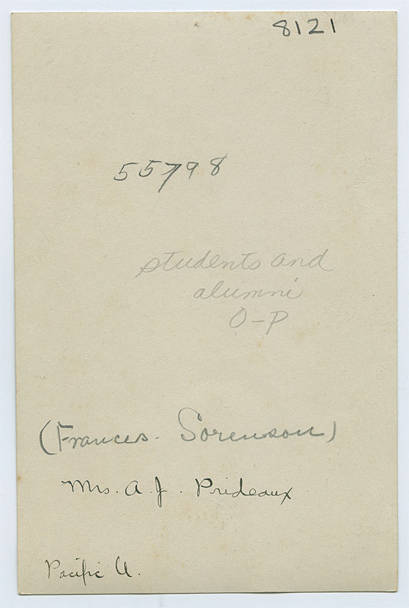 8121
55798
students and
alumni
O-P
(Frances. Sorenson)
Mrs. A. J. Prideaux
Pacific U.